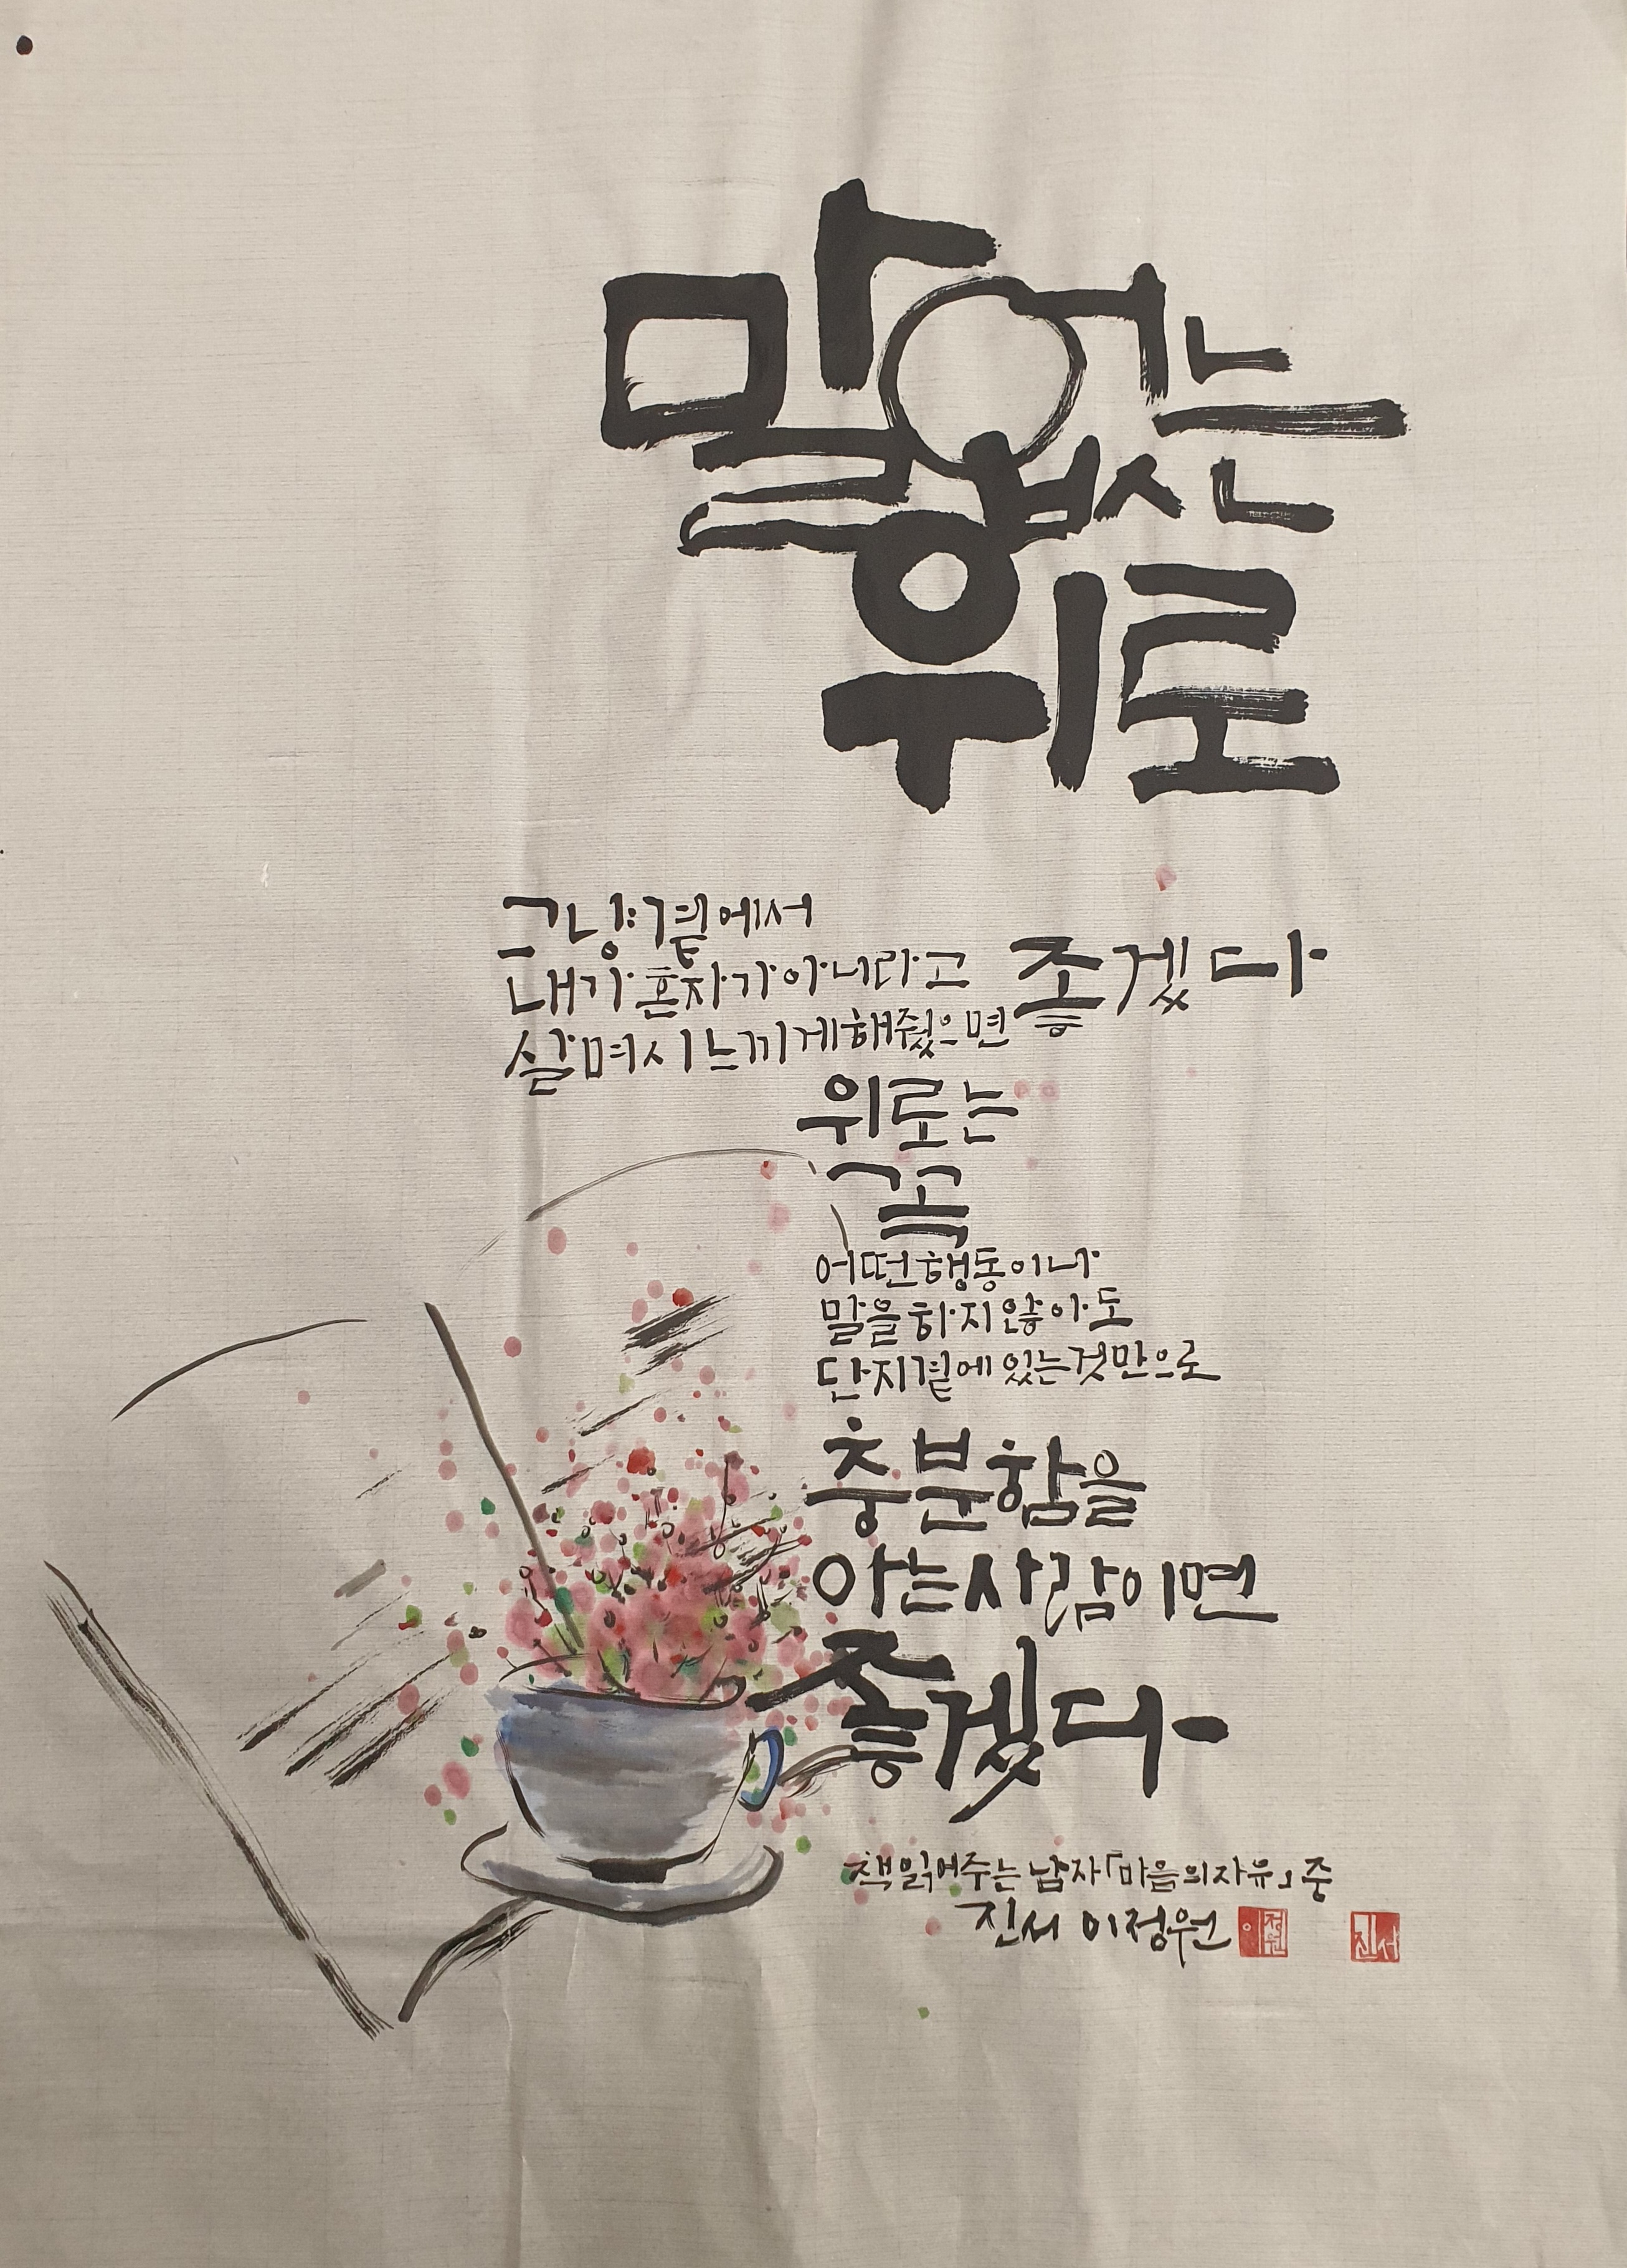 말 없는
위로
그냥 곁에서
내가 혼자가 아니라고
살며시 느끼게 해줬으면 좋겠다
위로는
꼭
어떤 행동이나
말을 하지 않아도
단지 곁에 있는 것만으로
충분함을
아는 사람이면
좋겠다
책 읽어주는 남자「마음의 자유」중
진서 이정원
이정원
진서